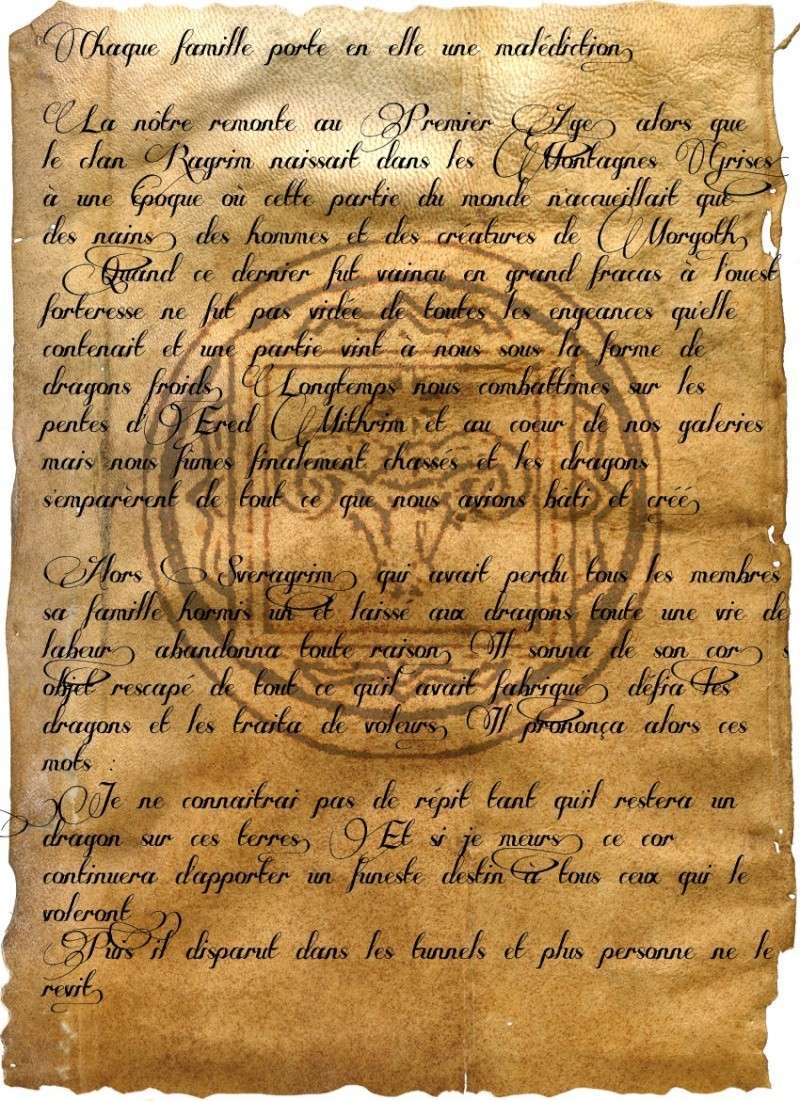 Chaque famille porte en elle une malédiction.
La nôtre remonte au Premier Age, alors que
le clan Ragrim naissait dans les Montagnes Grises
à une époque où cette partie du monde n'accueillait que
des nains, des hommes et des créatures de Morgoth.
Quand ce dernier fut vaincu en grand fracas à l'ouest
forteresse ne fut pas vidée de toutes les engeances qu'elle
contenait et une partie vint à nous sous la forme de
dragons froids. Longtemps nous combattîmes sur les
pentes d'Ered Mithrim et au coeur de nos galeries
mais nous fûmes finalement chassés et les dragons
s'emparèrent de tout ce que nous avions bâti et créé.
Alors Sveragrim, qui avait perdu tous les membres
sa famille hormis un et laissé aux dragons toute une vie de
labeur, abandonna toute raison. Il sonna de son cor, s
objet rescapé de tout ce qu'il avait fabriqué, défia les
dragons et les traita de voleurs. Il prononça alors ces
mots :
"Je ne connaitrai pas de répit tant qu'il restera un
dragon sur ces terres. Et si je meurs, ce cor
continuera d'apporter un funeste destin à tous ceux qui le
voleront."
Puis il disparut dans les tunnels et plus personne ne le
revit.